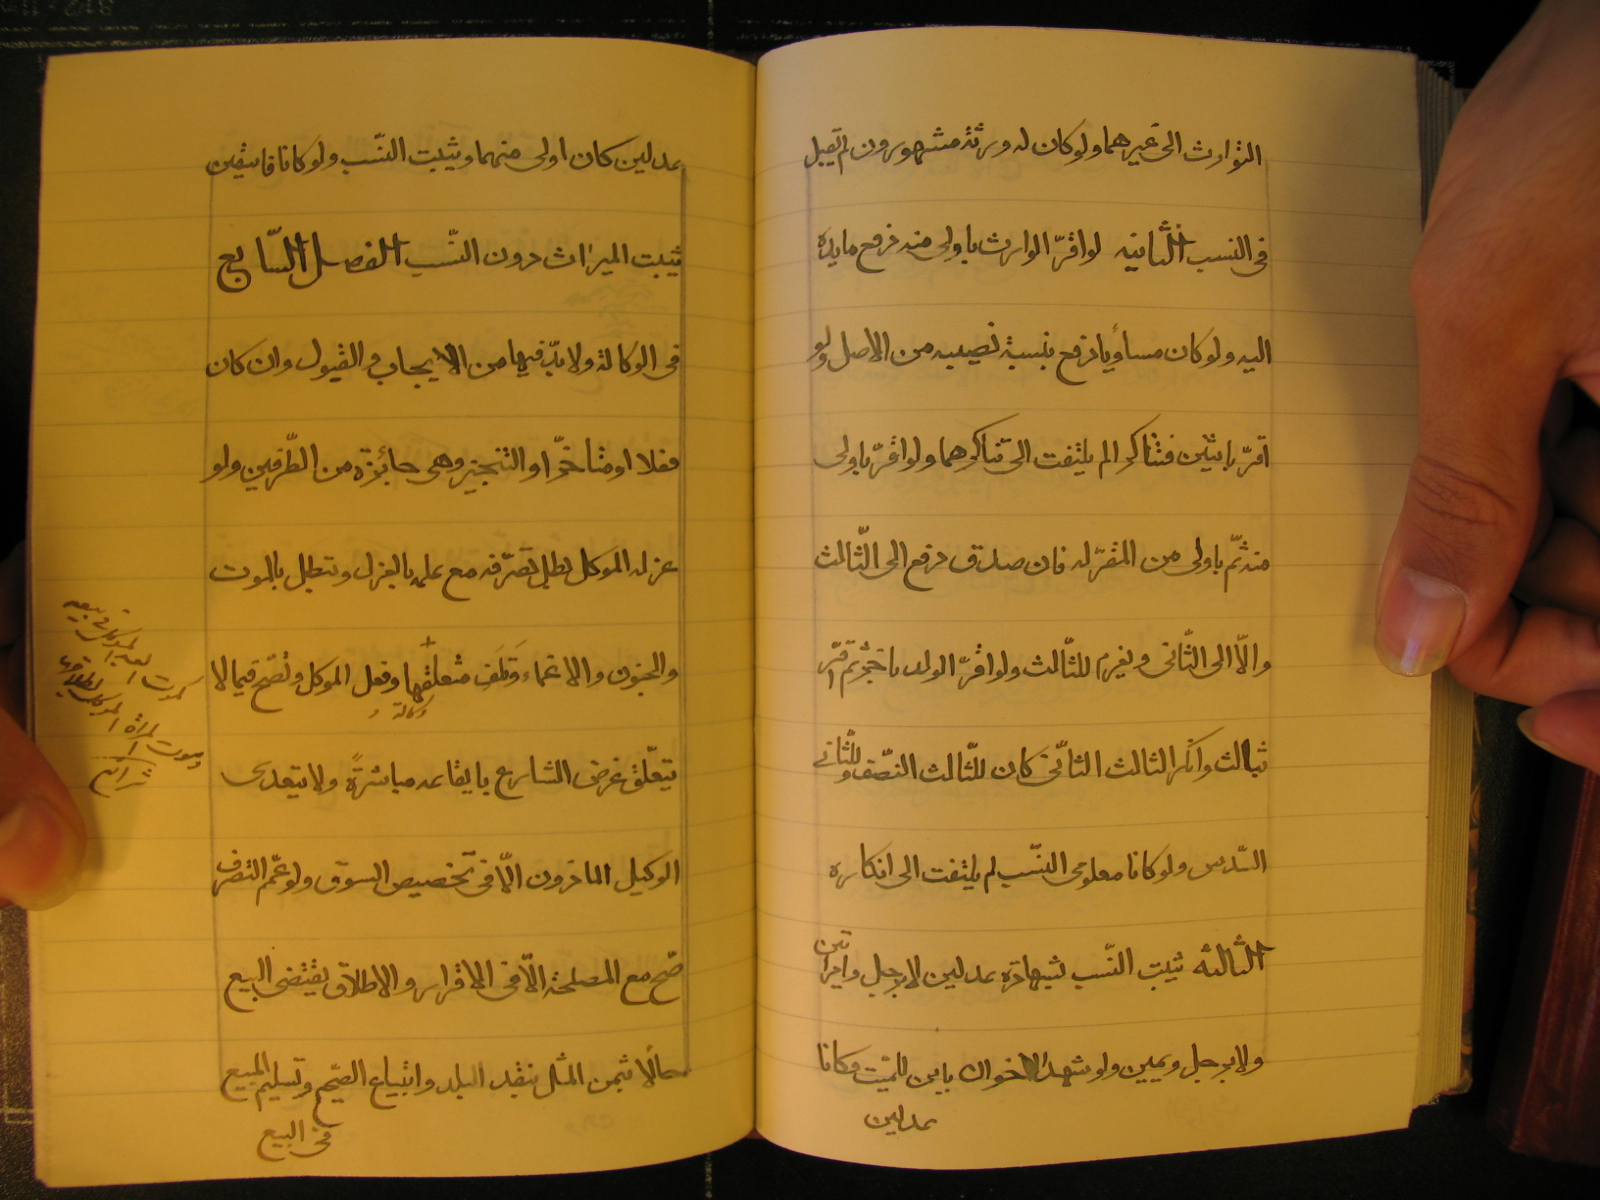 التوارث الی غیرهما ولو کان له ورثة مشهورون لم تقبل
فی النسب الثانیه لو اقرّ الوارث باولی منه دفع ما بیده
الیه ولو کان مساویا دفع بنسبة نصیبه من الاصل ولو
اقرّ باثنین فتناکرا لم یلتفت الی تناکرهما ولو اقرّ باولی
منه ثمّ باولی من المقرّ له فان صدق دفع الی الثّالث
والّا الی الثّانی ویغرم للثّالث ولو اقرّ الولد باخر ثم اقرّ
بثالث وانکر الثالث الثانی کان للثّالث النّصف وللثّانی
السّدس ولو کانا معلومی النّسب لم یلتفت الی انکاره
الثالثه یثبت النّسب بشهادة عدلین لا برجل وامراتین
ولا برجل ویمین ولو شهد الاخوان بابن للمیّت وکانا
عدلین
عدلین کان اولی منهما ویثبت النّسب ولو کانا فاسقین
یثبت المیراث دون النّسب الفصل السّابع
فی الوکالة ولا بدّ فیها من الایجاب والقبول وان کان
فعلا او متاخرّا والتنجیز وهی جائزة من الطّرفین ولو
عزله الموکل بطل تصرّفه مع علمه بالعزل وتبطل بالموت
والجنون والاغماء وتلف متعلّقها وفعل الموکل وتصّح فیما لا
وکالة
یتعلّق غرض الشارع بایقاعه مباشرةً ولا یتعدی
الوکیل الماذون الّا فی تخصیص السوق ولو عمّم التصرف
صّح مع المصلحة الّا فی الاقرار والاطلاق یقتضی البیع
حالّا بثمن المثل بنقد البلد وابتیاع الصّحیح وتسلیم المبیع
فی البیع
کموت العبد الموکل فی بیعه
وموت المرأة الموکل بطلاقها
شرایع